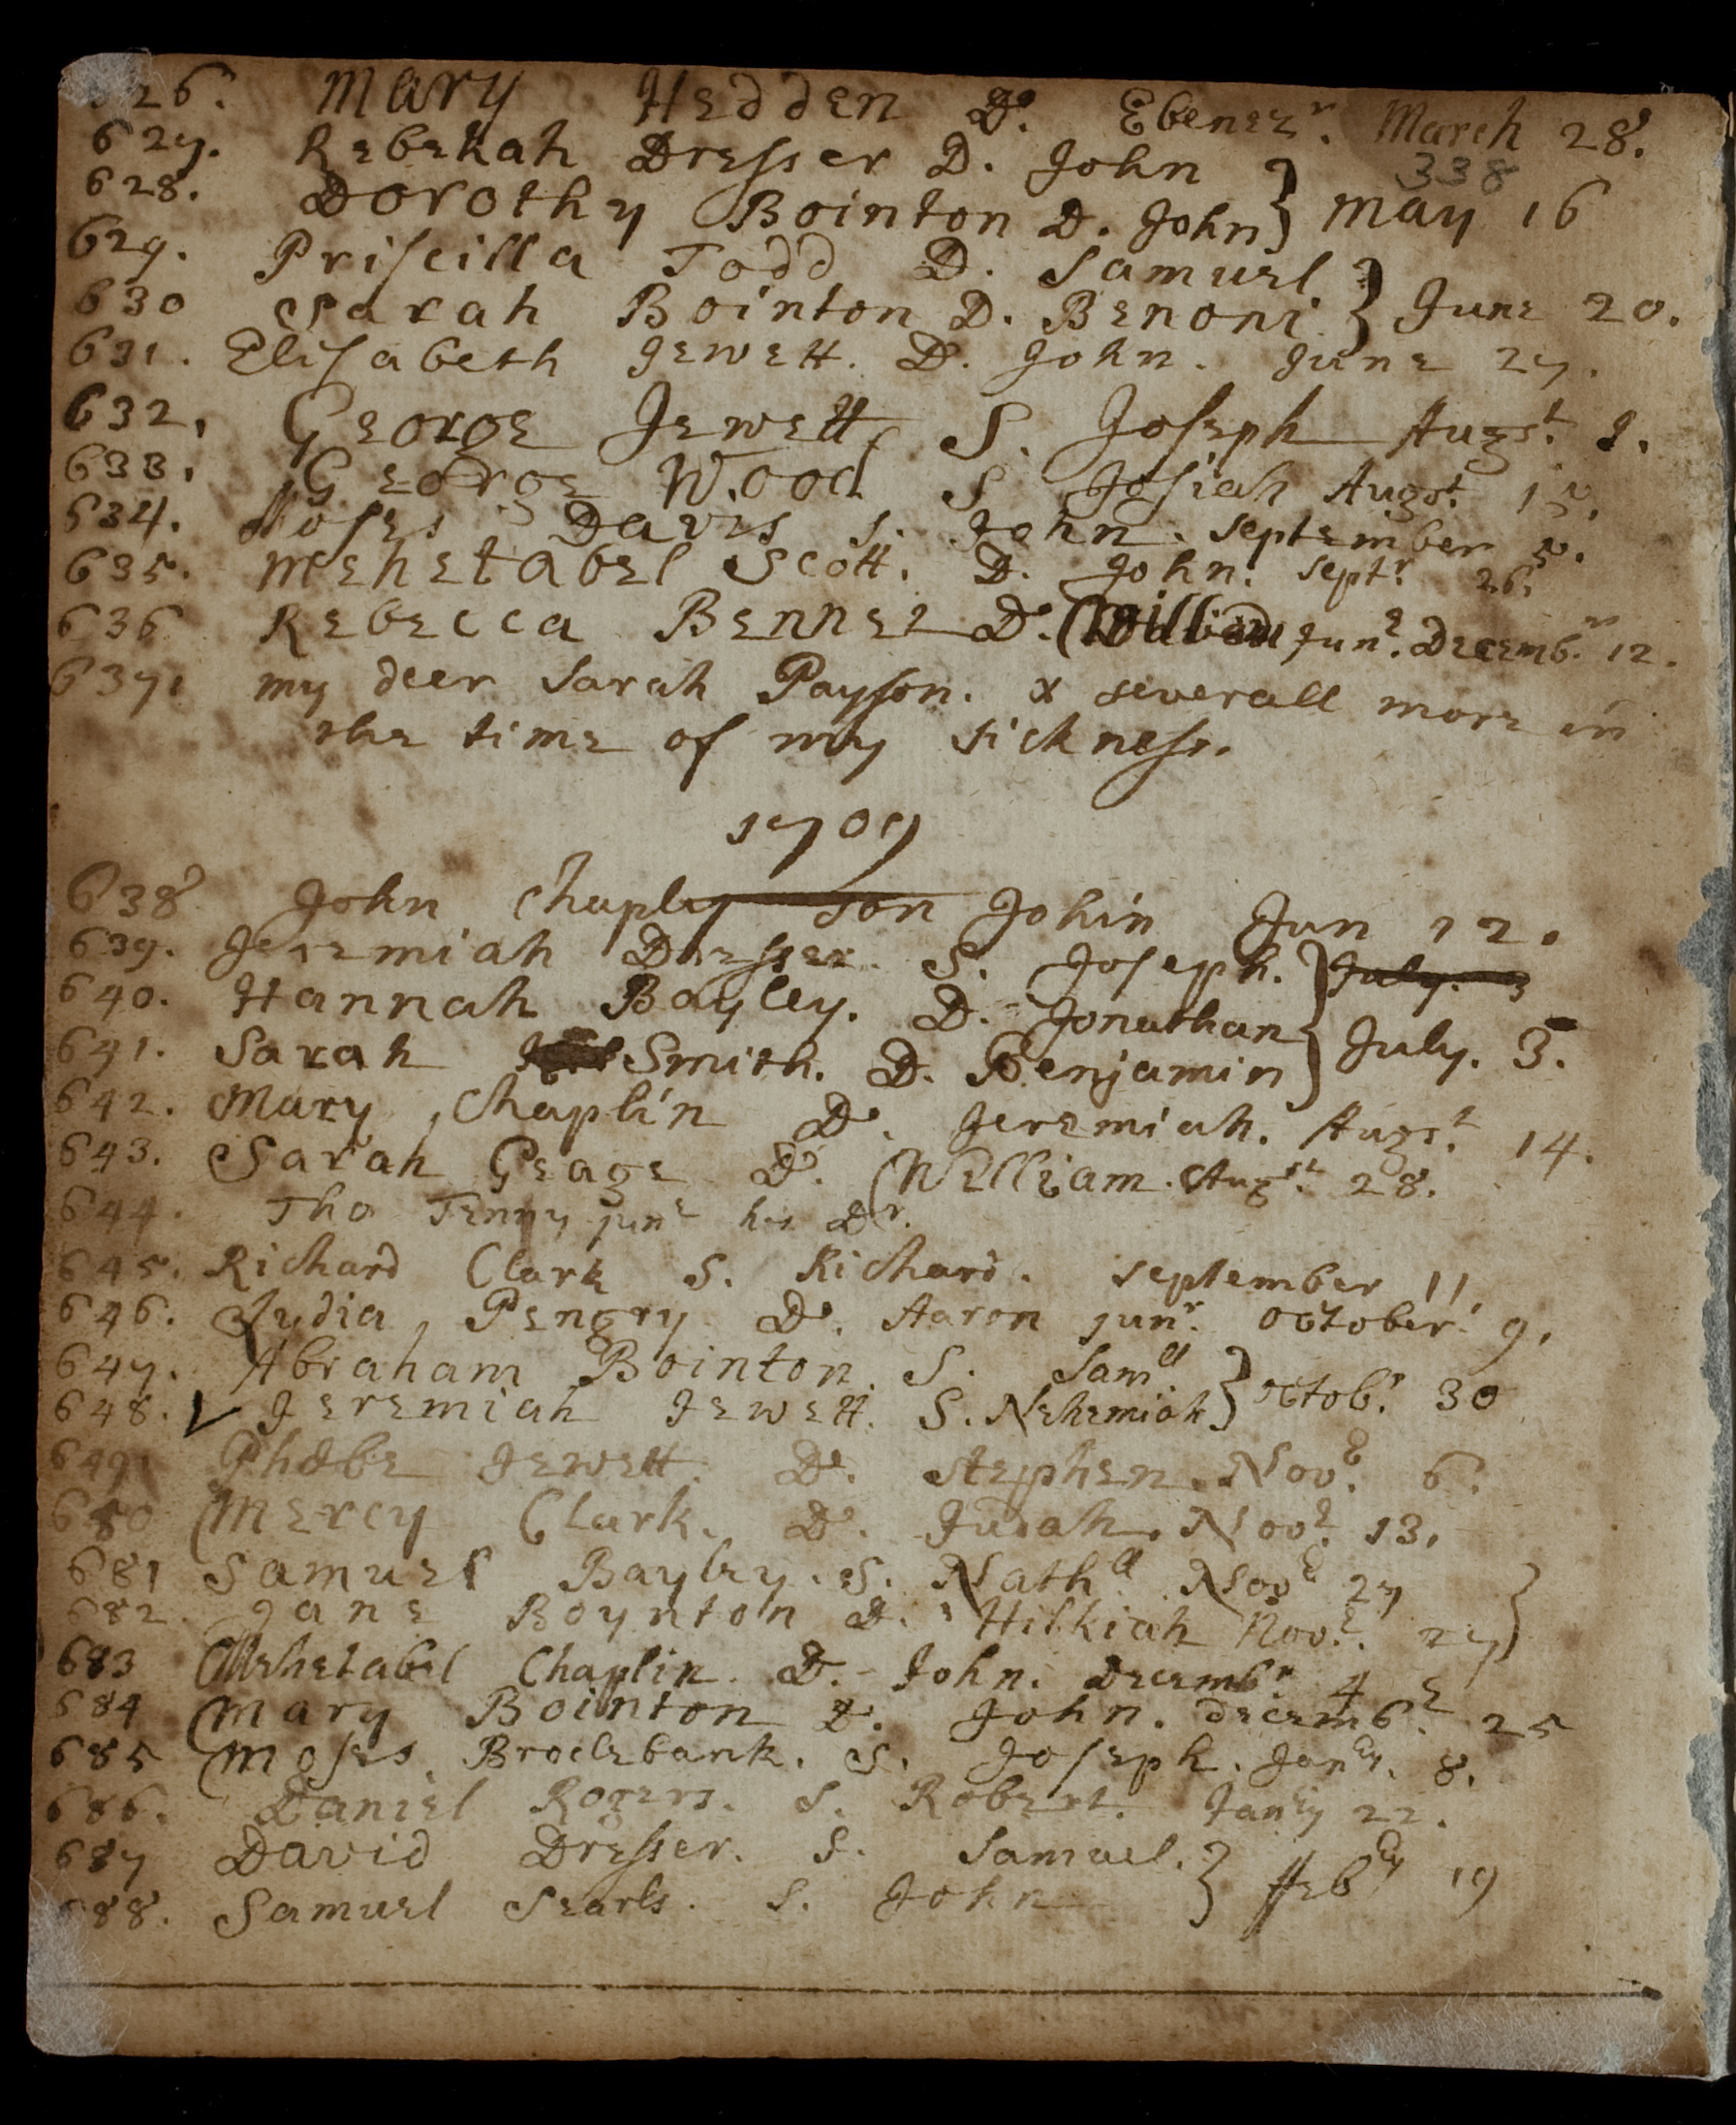 626. Mary Hedden D. Ebenezr. March 28.
338
627. Rebekah Dresser D. John
628. Dorothy Bointon D. John } May 16
629. Priscilla Todd D. Samuel
630 Sarah Bointon D. Benoni } June 20.
631. Elisabeth Jewett. D. John. June 27.
632. George Jewett S. Joseph Augst.
633. George Wood S Josiah Augst.
634. Moses Davis S. John. September 5.
635. Mehetabel Scott. D. John. Septr. 26.
636 Rebecca Bennet D. Junr. Decembr. 12.
637. my deer Sarah Payson. x severall more in
the time of my sickness.
1709
638 John Chaply son John Jun 12.
639. Jeremiah Dresser. S. Joseph. } July. 3
640. Hannah Bayley. D. Jonathan
641. Sarah Smith. D. Benjamin } July. 3.
642. Mary Chaplin D. Jeremiah. Augst. 14.
643. Sarah Geage D. William. Augst. 28.
644. Tho Tenny junr his Dr.
645. Richard Clark S. Richard. September 11.
646. Lydia Pengry D. Aaron junr. October. 9.
647. Abraham Bointon. S. Samll
648. Jeremiah Jewett. S. Nehemiah } Octobr. 30
649. Phœbe Jewett. D. Stephen. Novr. 6.
680 Mercy Clark. D. Judah. Novr. 13.
681 Samuel Bayley. S. Nathll Novr 27
682. Jane Boynton D. Hilkiah Novr. 27 }
683 Mehetabel Chaplin. D. John. Decembr 4
684 Mary Bointon D. John. Decembr. 25
685 Moses Broclebank. S. Joseph. Janry. 8.
686. Daniel Rogers. S. Robert. Janry 22.
687 David Dresser. S. Samuel.
688. Samuel Searls. S. John } ffebry 19